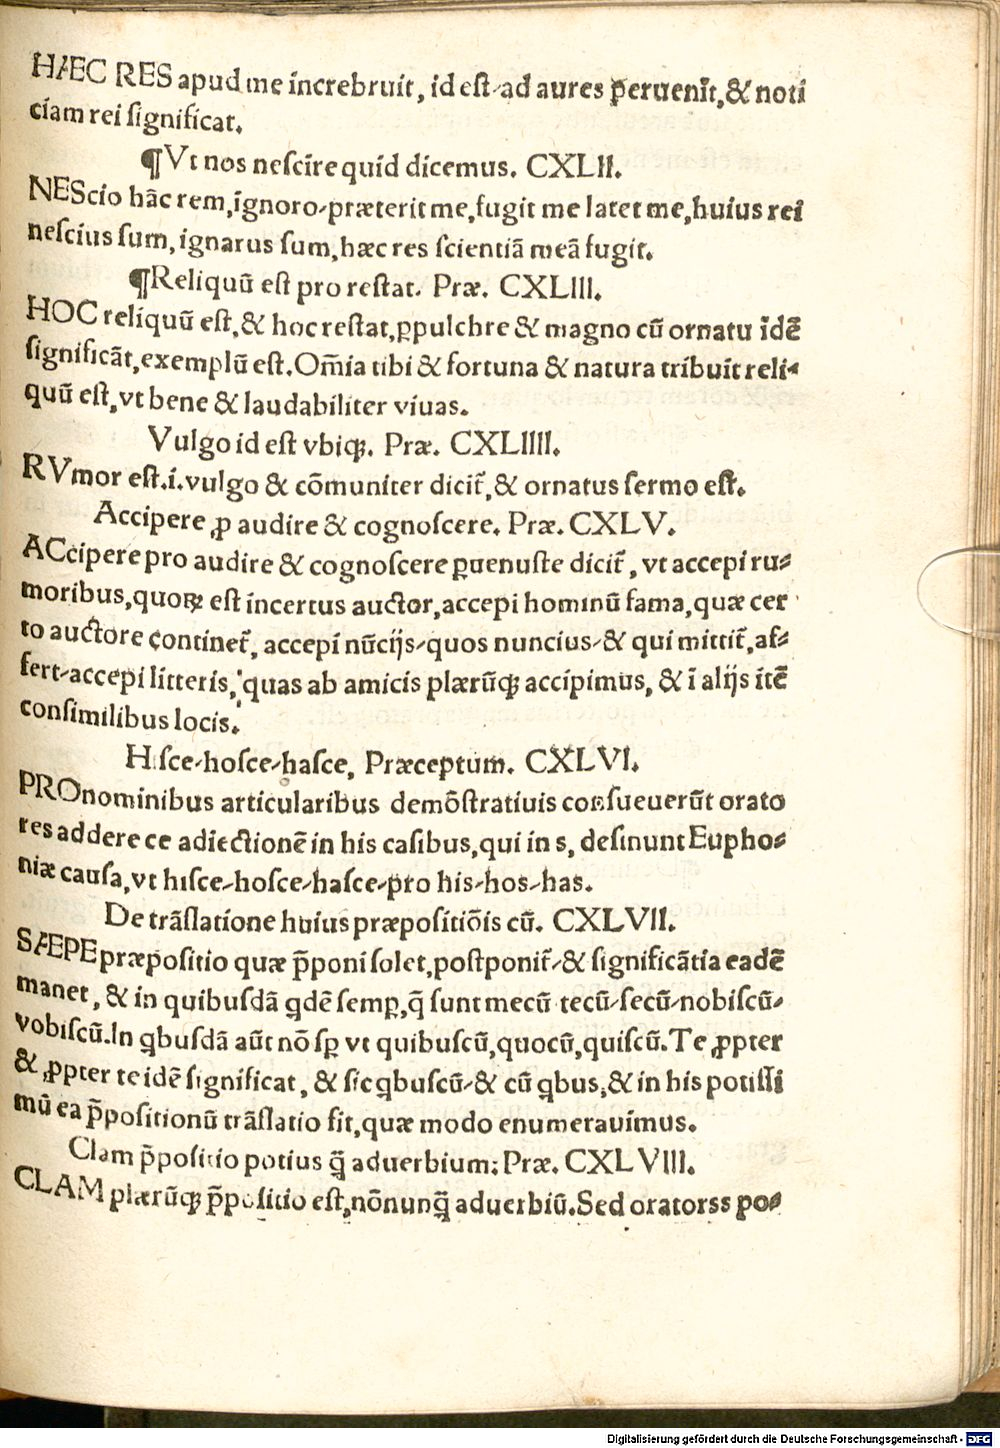 HAEC RES apud me increbruit, id est-ad aures ꝑuenit̃,& noti
ciam rei significat.
¶Vt nos nescire quid dicemus. CXLII.
NEScio hãc rem,ignoro-præterit me,fugit me latet me,huius rei
nescius sum, ignarus sum,hæc res scientiã meã fugit.
¶Reliquũ est pro restat. Præ. CXLIII.
HOC reliquũ est,& hoc restat,ꝑpulchre & magno cũ ornatu ĩdẽ
significãt,exemplũ est.Om̃ia tibi & fortuna & natura tribuit reli-
quũ est,vt bene & laudabiliter viuas.
Vulgo id est vbiqꝫ. Præ. CXLIIII.
RVmor est.i.vulgo & cõmuniter dicit̃,& ornatus sermo est.
Accipere ꝓ audire & cognoscere. Præ. CXLV.
ACcipere pro audire & cognoscere ꝑuenuste dicit̃, vt accepi ru-
moribus,quoꝝ est incertus auctor,accepi hominũ fama,quæ cer
to auctore continet̃, accepi nũcijs-quos nuncius-& qui mittit̃,af-
fert-accepi litteris, quas ab amicis plærũqꝫ accipimus, & ĩ alijs itẽ
consimilibus locis.
Hisce-hosce-hasce, Præceptum. CXLVI.
PROnominibus articularibus demõstratiuis consueuerũt orato
res addere ce adiectionẽ in his casibus,qui in s, desinunt Eupho-
niæ causa,vt hisce-hosce-hasce-pro his-hos-has.
De trãslatione huius præpositiõis cũ. CXLVII.
SAEPE præpositio quæ p̃poni solet,postponit̃-& significãtia eadẽ
manet, & in quibusdã qdẽ semꝑ,q̃ sunt mecũ tecũ-secũ-nobiscũ-
vobiscũ.In qbusdã aũt nõ sꝑ vt quibuscũ,quocũ,quiscũ.Te ꝓpter
& ꝓpter te idẽ significat, & sic qbuscũ-& cũ qbus,& in his potissi
mũ ea p̃positionũ trãslatio fit,quæ modo enumerauimus.
Clam p̃positio potius q̃ aduerbium: Præ. CXLVIII.
CLAM plærũqꝫ p̃positio est,nõnunq̃ aduerbiũ.Sed oratorss po-
Digitalisierung gefördert durch die Deutsche Forschungsgemeinschaft - DFG